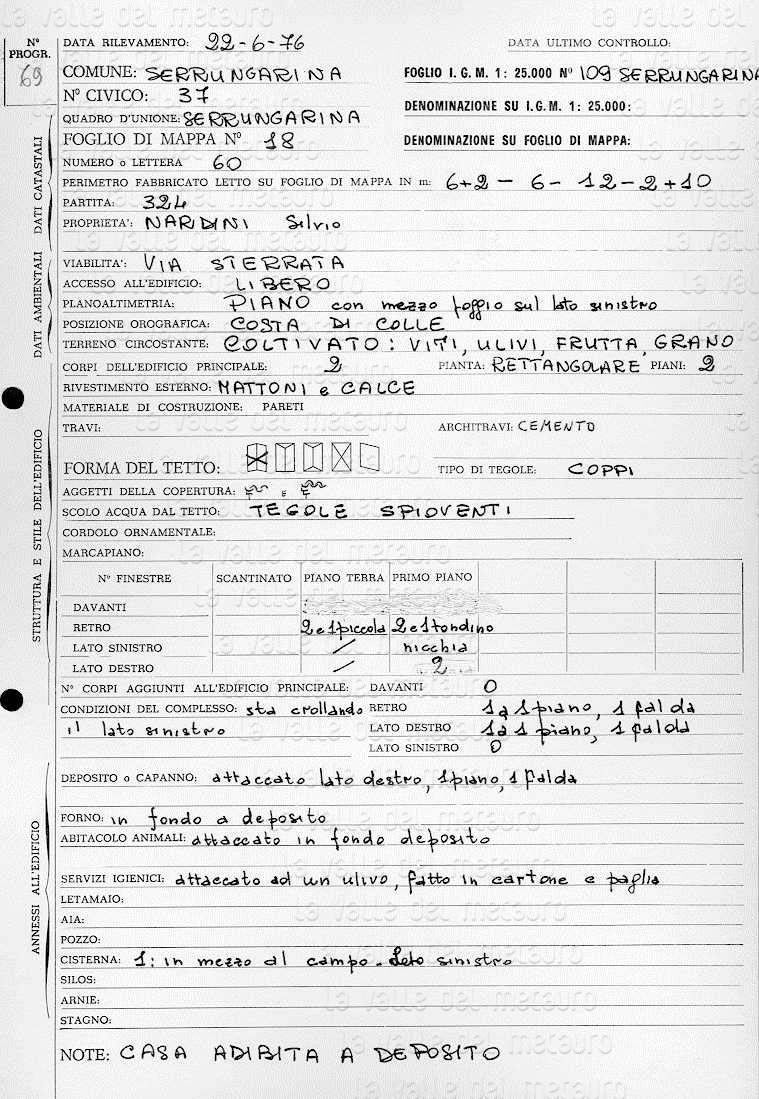 N°
PROGR.
69
DATA RILEVAMENTO: 22-6-76
DATA ULTIMO CONTROLLO:
COMUNE: SERRUNGARINA
FOGLIO I.G.M. 1: 25.000 N° 109 SERRUNGARINA
N° CIVICO: 37
DENOMINAZIONE SU I.G.M. 1: 25.000:
QUADRO D'UNIONE: SERRUNGARINA
FOGLIO DI MAPPA N° 18
DENOMINAZIONE SU FOGLIO DI MAPPA:
NUMERO o LETTERA 60
PERIMETRO FABBRICATO LETTO SU FOGLIO DI MAPPA IN m: 6+2 - 6 - 12 - 2 + 10
PARTITA: 324
PROPRIETA': NARDINI Silvio
DATI CATASTALI
VIABILITA': VIA STERRATA
ACCESSO ALL'EDIFICIO: LIBERO
PLANOALTIMETRIA: PIANO con mezzo poggio sul lato sinistro
POSIZIONE OROGRAFICA: COSTA DI COLLE
TERRENO CIRCOSTANTE: COLTIVATO: VITI, ULIVI, FRUTTA, GRANO
DATI AMBIENTALI
CORPI DELL'EDIFICIO PRINCIPALE: 2 PIANTA: RETTANGOLARE PIANI: 2
RIVESTIMENTO ESTERNO: MATTONI e CALCE
MATERIALE DI COSTRUZIONE: PARETI
TRAVI: ARCHITRAVI: CEMENTO
FORMA DEL TETTO: TIPO DI TEGOLE: COPPI
AGGETTI DELLA COPERTURA: e
SCOLO ACQUA DAL TETTO: TEGOLE SPIOVENTI
CORDOLO ORNAMENTALE:
MARCAPIANO:
N° FINESTRE SCANTINATO PIANO TERRA PRIMO PIANO
DAVANTI
RETRO 2 e 1 piccola 2 e 1 tondino
LATO SINISTRO / nicchia
LATO DESTRO / 2
STRUTTURA E STILE DELL'EDIFICIO
N° CORPI AGGIUNTI ALL'EDIFICIO PRINCIPALE: DAVANTI 0
CONDIZIONI DEL COMPLESSO: sta crollando RETRO 1 a 1 piano, 1 falda
il lato sinistro LATO DESTRO 1 a 1 piano, 1 falda
LATO SINISTRO 0
DEPOSITO o CAPANNO: attaccato lato destro, 1 piano, 1 falda
FORNO: in fondo a deposito
ABITACOLO ANIMALI: attaccato in fondo deposito
SERVIZI IGIENICI: attaccato ad un ulivo, fatto in cartone e paglia
LETAMAIO:
AIA:
POZZO:
CISTERNA: 1: in mezzo al campo. Lato sinistro
SILOS:
ARNIE:
STAGNO:
ANNESSI ALL'EDIFICIO
NOTE: CASA ADIBITA A DEPOSITO
la valle del metauro